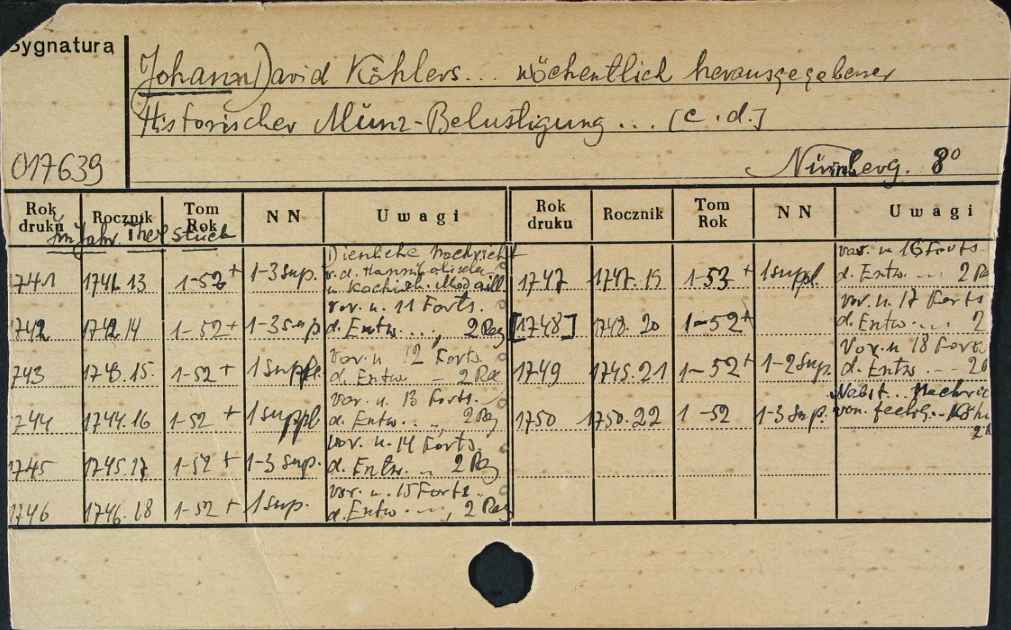 Sygnatura
Johann David Köhlers... wöchentlich herausgegebener
Historischer Münz-Belustigung ... [c.d.]
017639
Nürnberg. 8°
Rok druku Rocznik Tom Rok NN Uwagi Rok druku Rocznik Tom Rok NN Uwagi
im Jahr Theil Stück
Dienliche Nachricht
1741 1741.13 1-52+ 1-3 sup. v.d.
u.
1742 1742.14 1-52+ 1-3 sup vor. u. 11 Forts.
d. Entw. ...., 2 Reg
1743 1743.15. 1-52+ 1 suppl. vor. u 12 Forts.
d. Entw. 2 Re
1744 1744.16 1-52+ 1 suppl vor. u. 13 Forts.
d. Entw. .. 2 Reg
1745 1745.17 1-52+ 1-3 sup. vor. u. 14 Forts.
d. Entw. .. 2 Reg
1746 1746.18 1-52+ 1 sup. vor. u. 15 Forts.
d. Entw. ..., 2 Reg
1747 1747.19 1-53+ 1 suppl. vor. u 16 Forts
d. Entw. ... 2 R
[1748] 1748.20 1-52+ vor. u. 17 Forts
d. Entw. ... 2
1749 1745.21 1-52+ 1-2 sup. vor. u 18 Forts
d. Entw. ... 2
1750 1750.22 1-52 1-3 sup. Nebst..
von